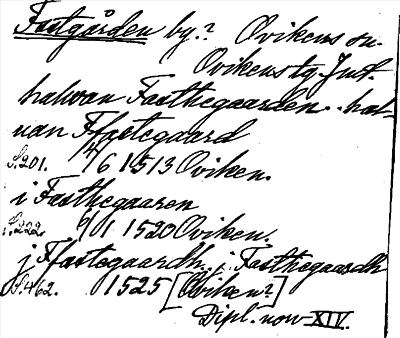 Fastgården by.? Ovikens sn.
Ovikens tg. Jmt.
halwan Fasthegaarden.. hal-
uan Ffastegaard
S. 201. 14/6 1513 Oviken.
i Fasthegaaren
S. 222. 6/1 1520 Oviken.
j Ffastegaardh.. j. Fasthegaardh
S. 462. 1525 [Oviken?]
Dipl. norv XIV.